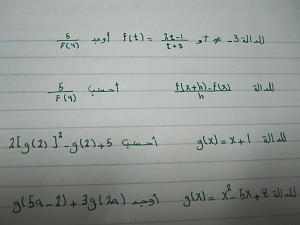 للدالة f(t) = \frac{2t-1}{t+3} و t ≠ -3 أوجد \frac{5}{F(4)}
للدالة \frac{f(x+h)-f(x)}{h} احسب \frac{5}{F(4)}
للدالة g(x) = x+1 أحسب 2[g(2)]²-g(2)+5
للدالة g(x) = x²-5x+8 أوجد g(5a-2)+3g(2a)